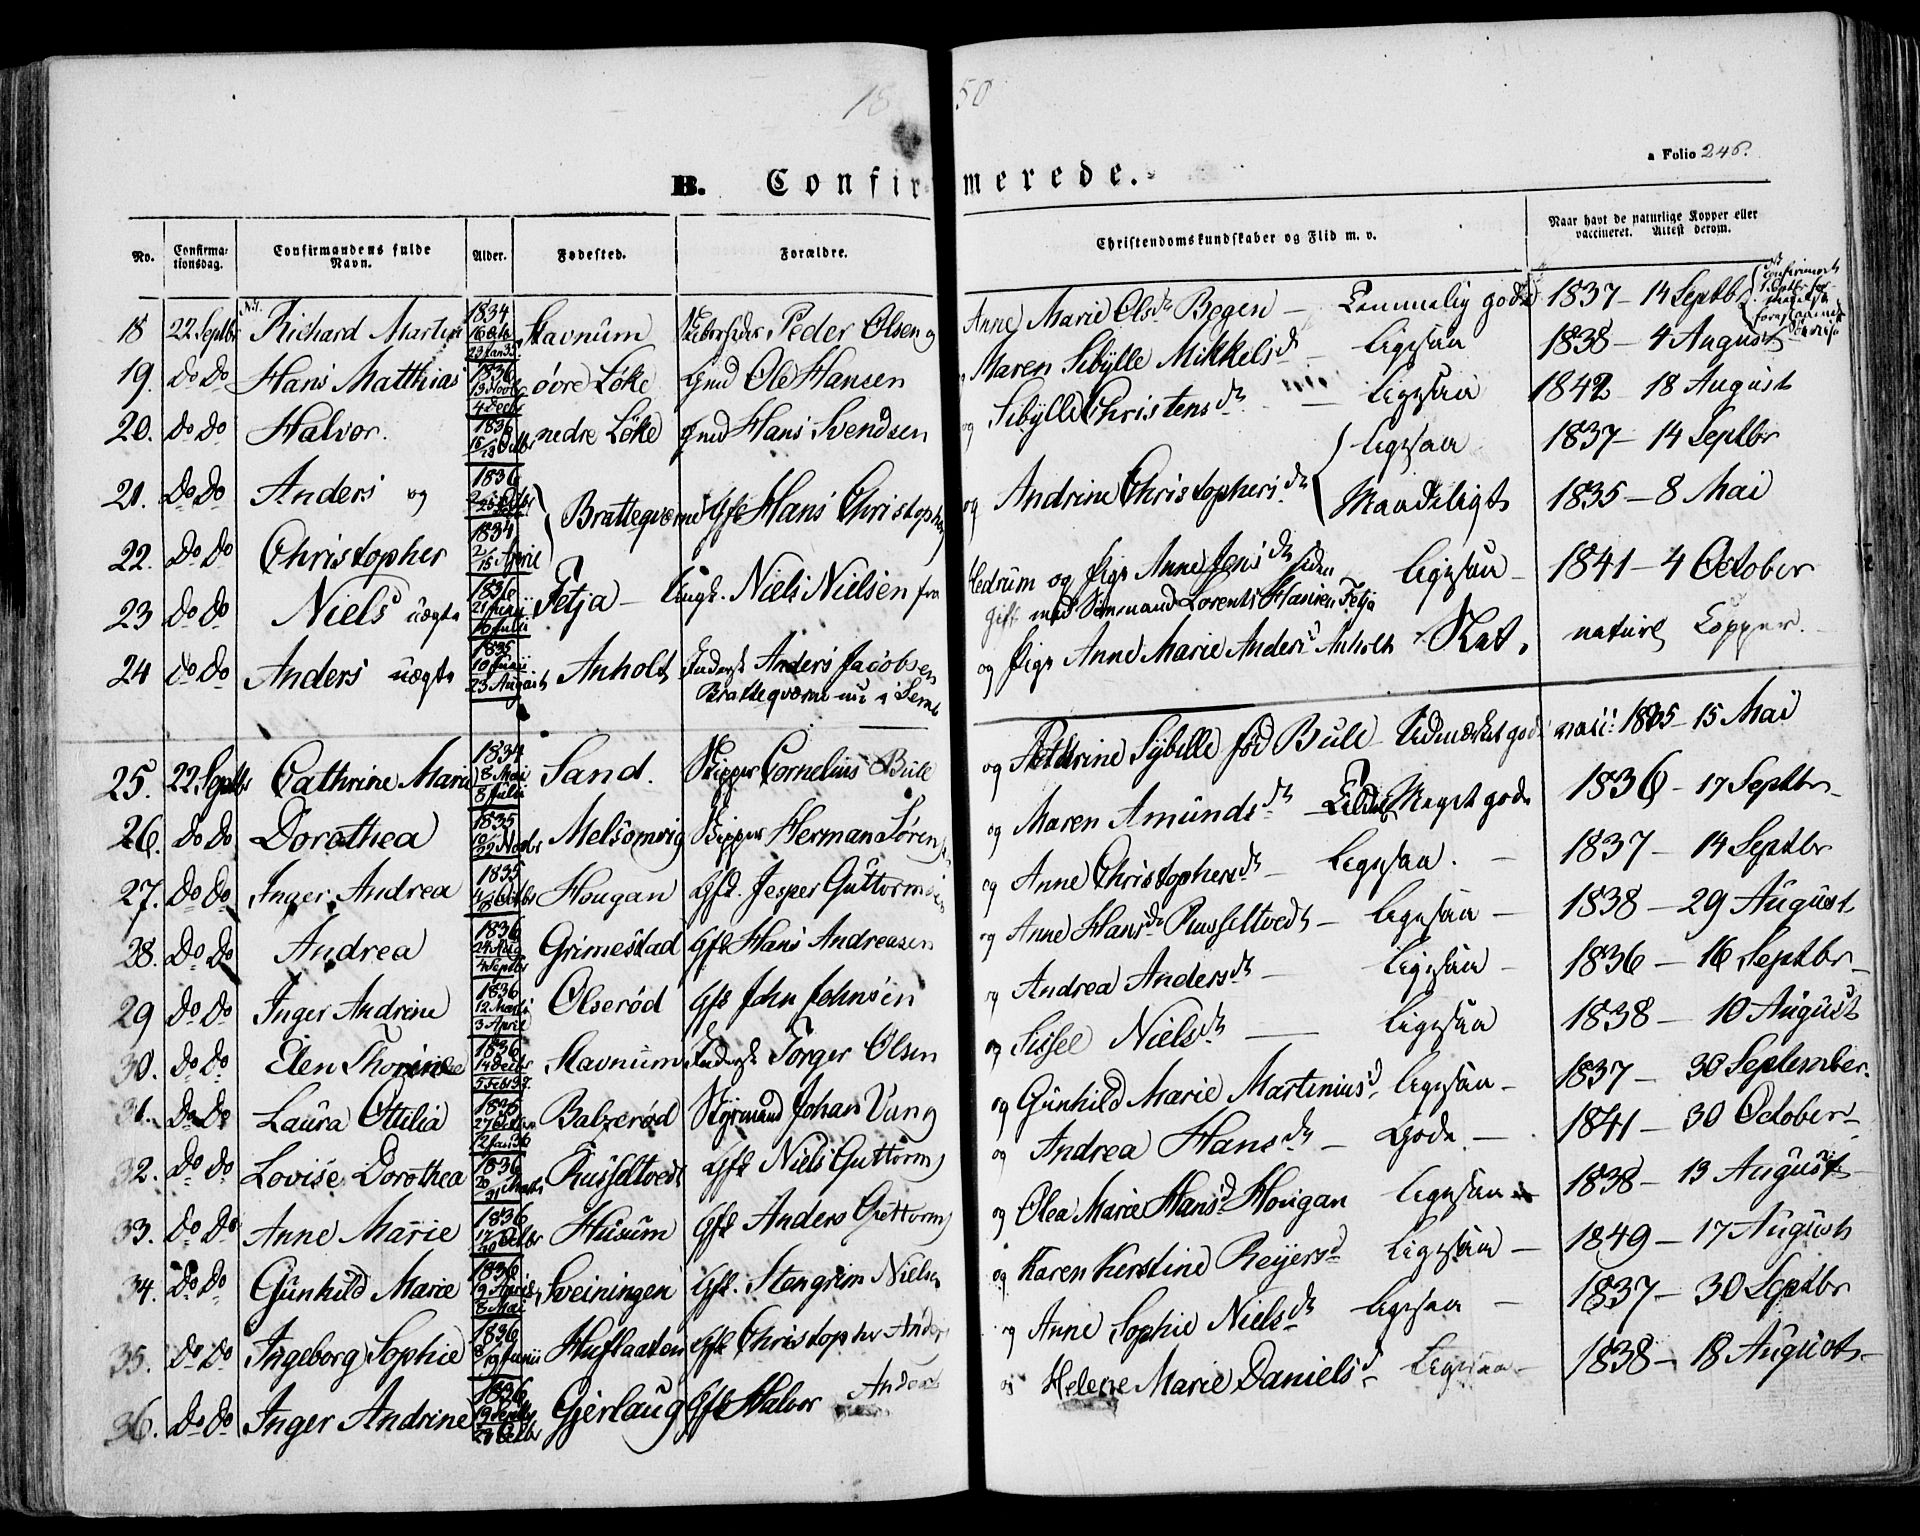 1850
a Folio 246.
B. Confirmerede.
No. Confirmationsdag. Confirmandens fulde Navn. Alder. Fødested. Forældre. Christendomskundskaber og Flid m. v. Naar havt de naturlige Kopper eller vaccineret. Attest derom.
18 22 Septbr Richard Martin 1834 Stavnum Peder Olsen og Anne Marie Olsdr Bogen – Temmelig gode 1837 – 14 Septbr
19. Do Do Hans Matthias 1836 4 Decbr øvre Løke Gmd Ole Hansen og Maren Sibylle Mikkelsd – Ligesaa 1838 – 4 August
20. Do Do Halvor. 1836 nedre Løke Gmd Hans Svendsen og Sibylle Christensdr – Ligesaa 1842 – 18 August
21. Do Do Anders og 1836 Brattegværne Gfst Hans Christophers og Andrine Christophersdr Ligesaa 1837 – 14 Septbr
22. Do Do Christopher 1834 2/15 April Maadeligt 1835 – 8 Mai
23 Do Do Niels uægte 1836 21 Juni 10 Julii Fetja – Ungk. Niels Nielsen fra Hedrum og Pige Anne Jensdr siden Ligesaa – 1841 – 4 October
gift med Sømand Lorents Hansen Fetja
24 Do Do Anders uægte 1835 10 Juni 23 August Anholt Anders Jacobsen og Pige Anne Marie Andersd Anholt Slet. nature Copper. –
Brattegværne nu i Sem
25. 22 Septbr Cathrine Marie 1834 8 Mai 8 Julii Sand. Skipper Cornelius Bull og Petterine Sybille fød Bull – Udmærket god vacc: 1835 – 15 Mai
26. Do Do Dorothea 1835 10/22 Novbr Melsomvig Skipper Herman Sørensen og Maren Amundsdr – Meget gode 1836 – 17 Septbr –
27. Do Do Inger Andrea 1835 Hougan Gfst. Jesper Guttormsen og Anne Christophersdr – Ligesaa. – 1837 – 14 Septbr
28. Do Do Andrea 1836 24 Aug 4 Septbr Grimestad Gfst Hans Andreasen og Anne Hansdr Russeltvedt – Ligesaa – 1838 – 29 August
29 Do Do Inger Andrine 1836 12 Marts 3 April Olserød Gfst John Johnsen og Andrea Andersdr – Ligesaa – 1836 – 16 Septbr –
30. Do Do Elen Thorine 1836 14 Decbr 5 Febr 37. Stavnum Torger Olsen og Sissel Nielsdr – Ligesaa 1838 – 10 August
31. Do Do Laura Ottilia 1835 12 Jan 36 Balzerød Styrmand Johan Vung og Gunhild Marie Martiniusd Ligesaa – 1837 – 30 September.
32. Do Do Lovise Dorothea 1836 Russeltvedt Gfst Niels Guttorms og Andrea Hansdr – Gode – 1841 – 30 October –
33. Do Do Anne Marie 1836 Husum Gfst Anders Guttorms og Olea Marie Hansd Hougan Ligesaa 1838 – 13 August –
34. Do Do Gunhild Marie 1836 19 April 8 Mai Sveiningen Gfst. Stengrim Nielsen og Karen Kerstine Reyersd Ligesaa – 1849 – 17 August
35. Do Do Ingeborg Sophie 1836 8/19 Junii Huflaaten Gfst Christopher Anders og Anne Sophie Nielsdr Ligesaa – 1837 – 30 Septbr
36. Do Do Inger Andrine 1836 Gjerlaug Gfst Halvor Anders og Helene Marie Danielsd Ligesaa – 1838 – 18 August –